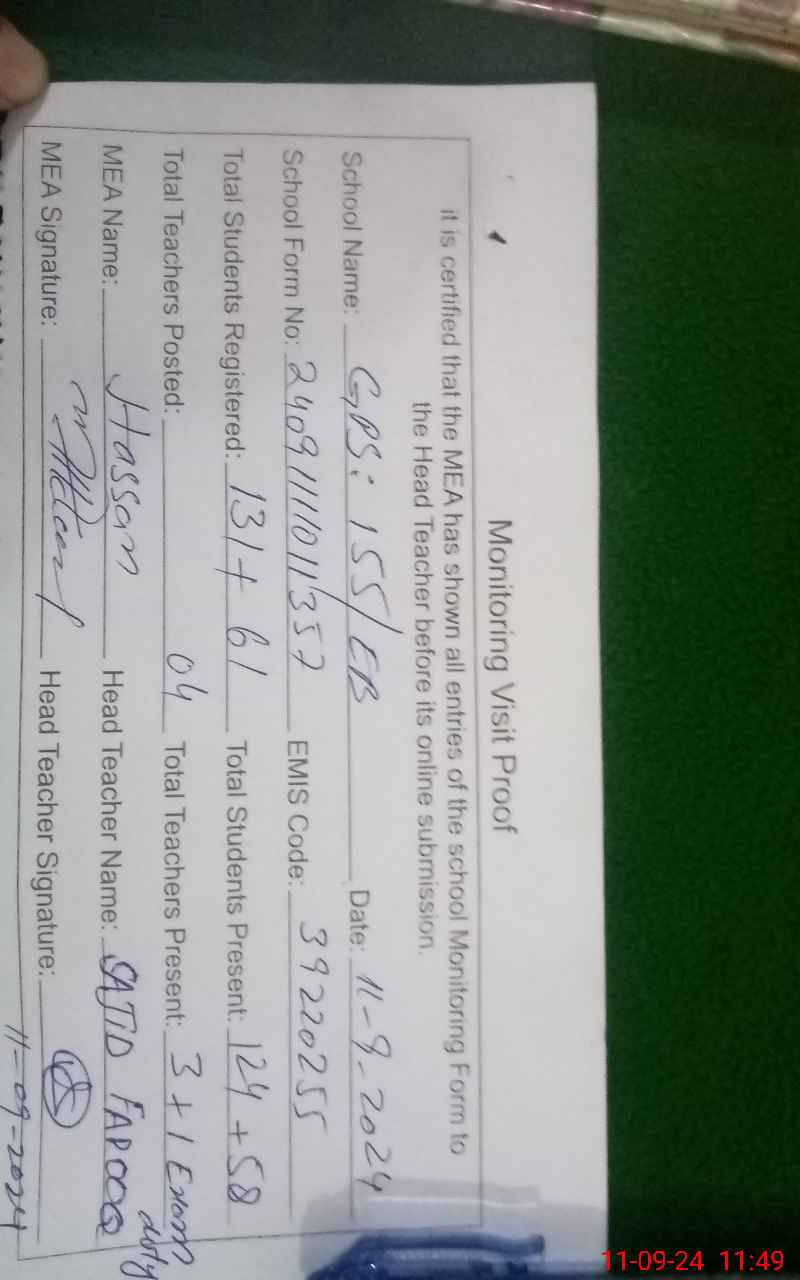 Monitoring Visit Proof
it is certified that the MEA has shown all entries of the school Monitoring Form to
the Head Teacher before its online submission.
School Name: GPS: 155/EB Date: 11-9-2024
School Form No: 24091111011357 EMIS Code: 39220255
Total Students Registered: 131+ 61 Total Students Present: 124 +58
Total Teachers Posted: 04 Total Teachers Present: 3 + 1 Exam duty
MEA Name: Hassan Head Teacher Name: SAJID FAROOQ
MEA Signature: Head Teacher Signature:
11-09-2024
11-09-24 11:49